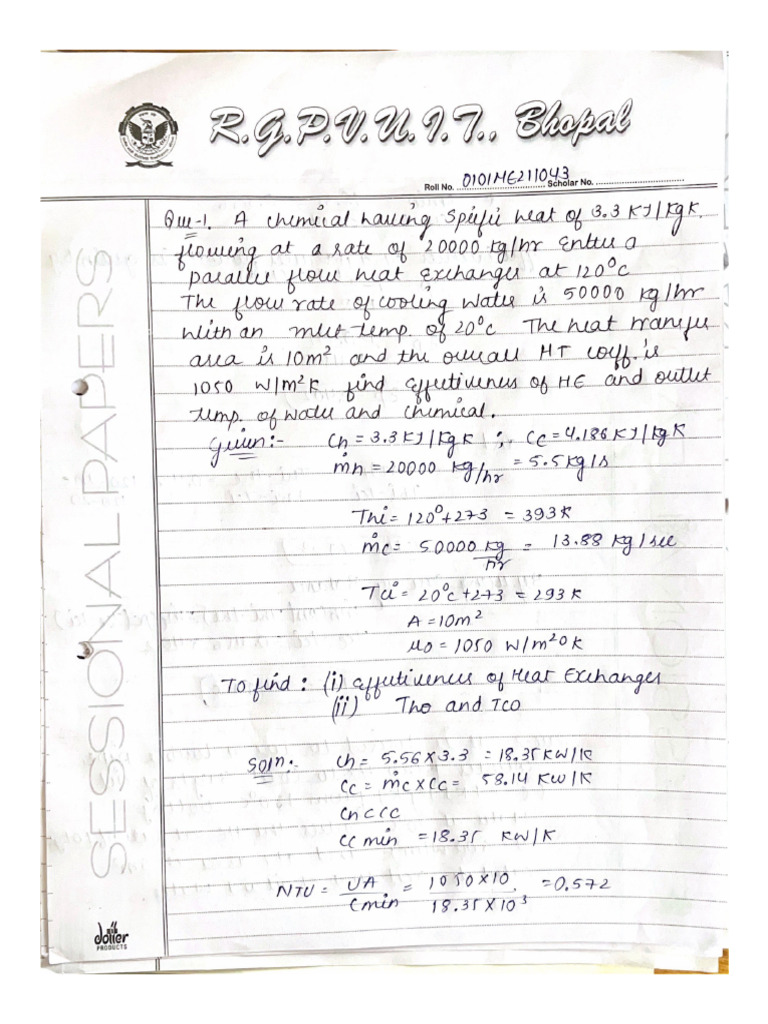 R.G.P.V.U.I.T., Bhopal
Roll No. 0101ME211043 Scholar No.
SESSIONAL PAPERS
Que-1. A chemical having specific heat of 3.3 KJ/Kg K.
flowing at a rate of 20000 kg/hr Enters a
parallel flow heat Exchanger at 120°C
The flow rate of cooling water is 50000 kg/hr
with an inlet temp. of 20°C The heat transfer
area is 10m² and the overall HT coeff. is
1050 W/m²K find effectiveness of HE and outlet
temp. of water and chemical.
Given:- Ch = 3.3 KJ/Kg K ; Cc = 4.186 KJ/Kg K
ṁh = 20000 kg/hr = 5.5 kg/s
Thi = 120°+273 = 393 K
ṁc = 50000 kg/hr = 13.88 kg/sec
Tci = 20°C+273 = 293 K
A = 10m²
uo = 1050 W/m²°K
To find : (i) effectiveness of Heat Exchanger
(ii) Tho and Tco
Soln:- Ch = 5.56 × 3.3 = 18.35 KW/K
Cc = ṁc × Cc = 58.14 KW/K
Ch < Cc
Cc min = 18.35 KW/K
NTU = UA/Cmin = 1050×10/18.35×10³ = 0.572
doller
PRODUCTS